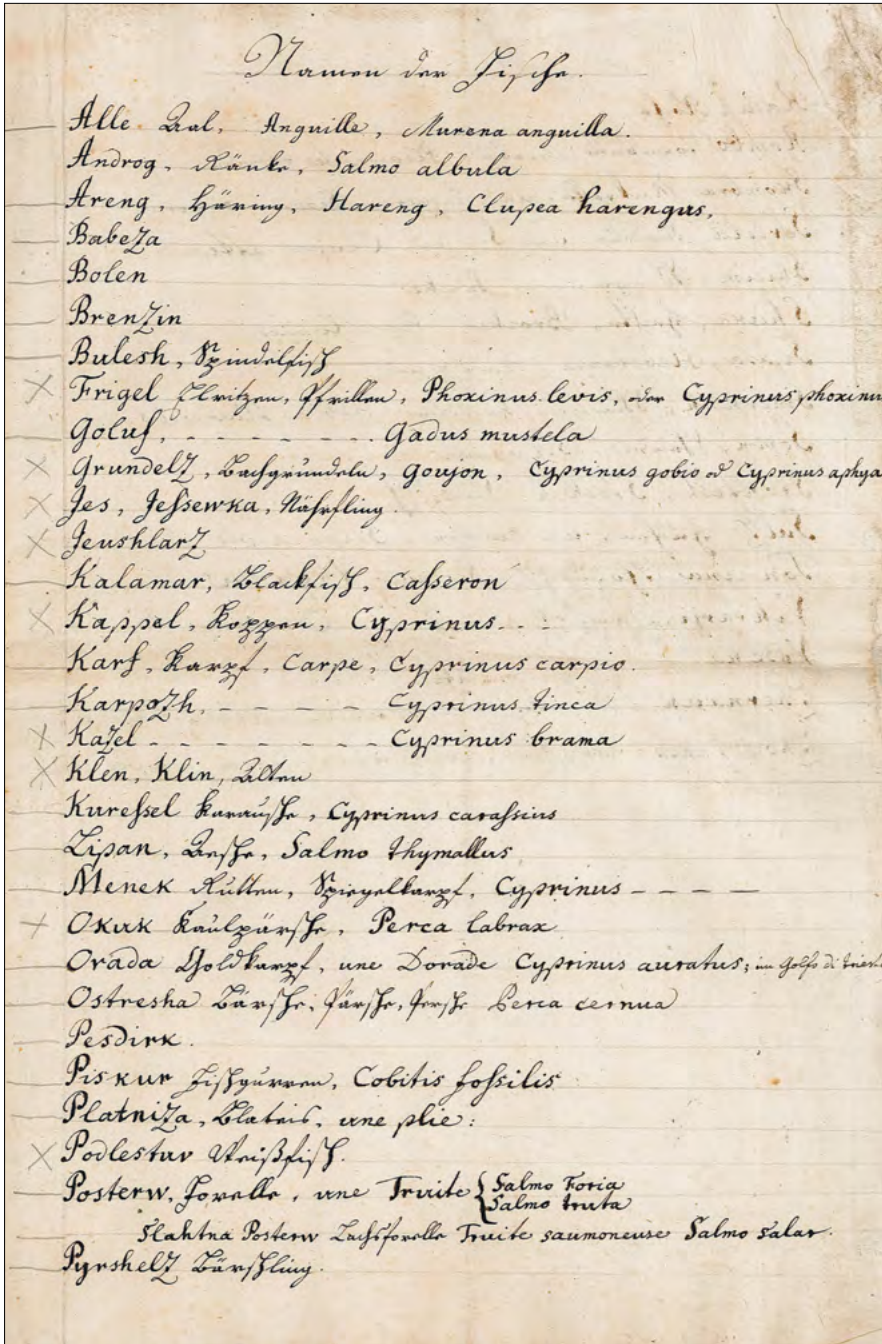 Namen der Fische.
Alle Aal, Anguille, Murena anguilla.
Androg, Ränke, Salmo albula
Areng, Häring, Hareng, Clupea harengus,
Babeza
Bolen
Brenzin
Bulesh, Spindelfisch
Frigel Elritzen, Pfrillen, Phoxinus levis, oder Cyprinus phoxinu
Goluf, - - - - - - - Gadus mustela
Grundelz, Bachgrundeln, Goujon, Cyprinus gobio od Cyprinus aphya
Jes, Jeſsewka, Nährfling.
Jeushlarz
Kalamar, Blackfisch, Caſseron
Kappel, Koppen, Cyprinus - - -
Karf, Karpf, Carpe, Cyprinus carpio.
Karpozh, - - - - - Cyprinus tinca
Kazel - - - - - - - Cyprinus brama
Klen, Klin, Alten
Kureſsel Karausche, Cyprinus caraſsius
Lipan, Aesche, Salmo thymallus
Menek Rutten, Spiegelkarpf, Cyprinus - - - -
Okuk Kaulpärsche, Perca labrax
Orada Goldkarpf, une Dorade Cyprinus auratus; im Golfo di
Ostresha Bärsche, Pärsche, Persche Perca cernua
Pesdirk.
Piskur Fischgurren, Cobitis foſsilis
Platniza, Blateis, une plie:
Podlestuv Weißfisch.
Posterw, Forelle, une Truite { Salmo Foria
Salmo truta
Slahtna Posterw Lachsforelle Truite saumoneuse Salmo salar.
Pyrshelz Bärschling.